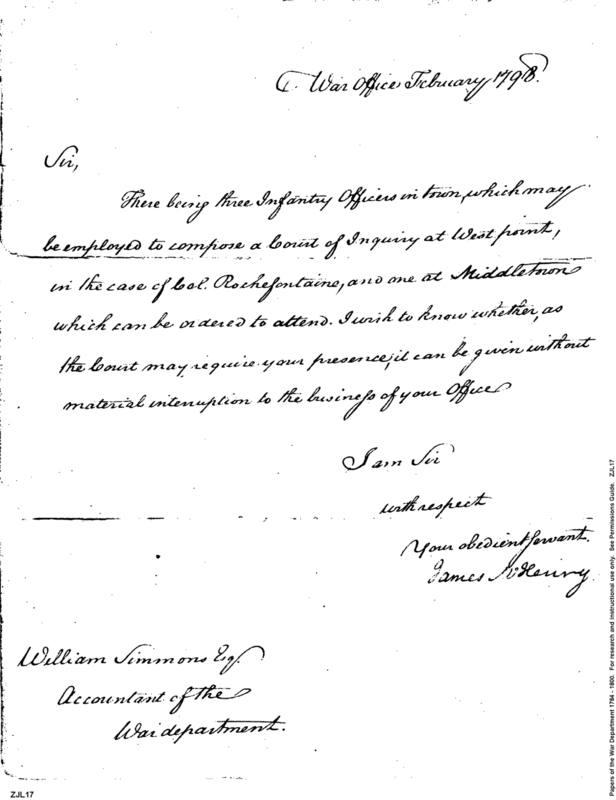 War Office February 1798.
Sir,
There being three Infantry Officers in town, which may
be employed to compose a Court of Inquiry at West point,
in the case of Col. Rochefontaine, and one at Middletown
which can be ordered to attend. I wish to know whether, as
the Court may require your presence, it can be given without
material interruption to the business of your Office
I am Sir
with respect
Your obedient servant.
James McHenry
William Simmons Esq.
Accountant of the
War department.
ZJL17
Papers of the War Department 1784 - 1800. For research and instructional use only. See Permissions Guide. ZJL17